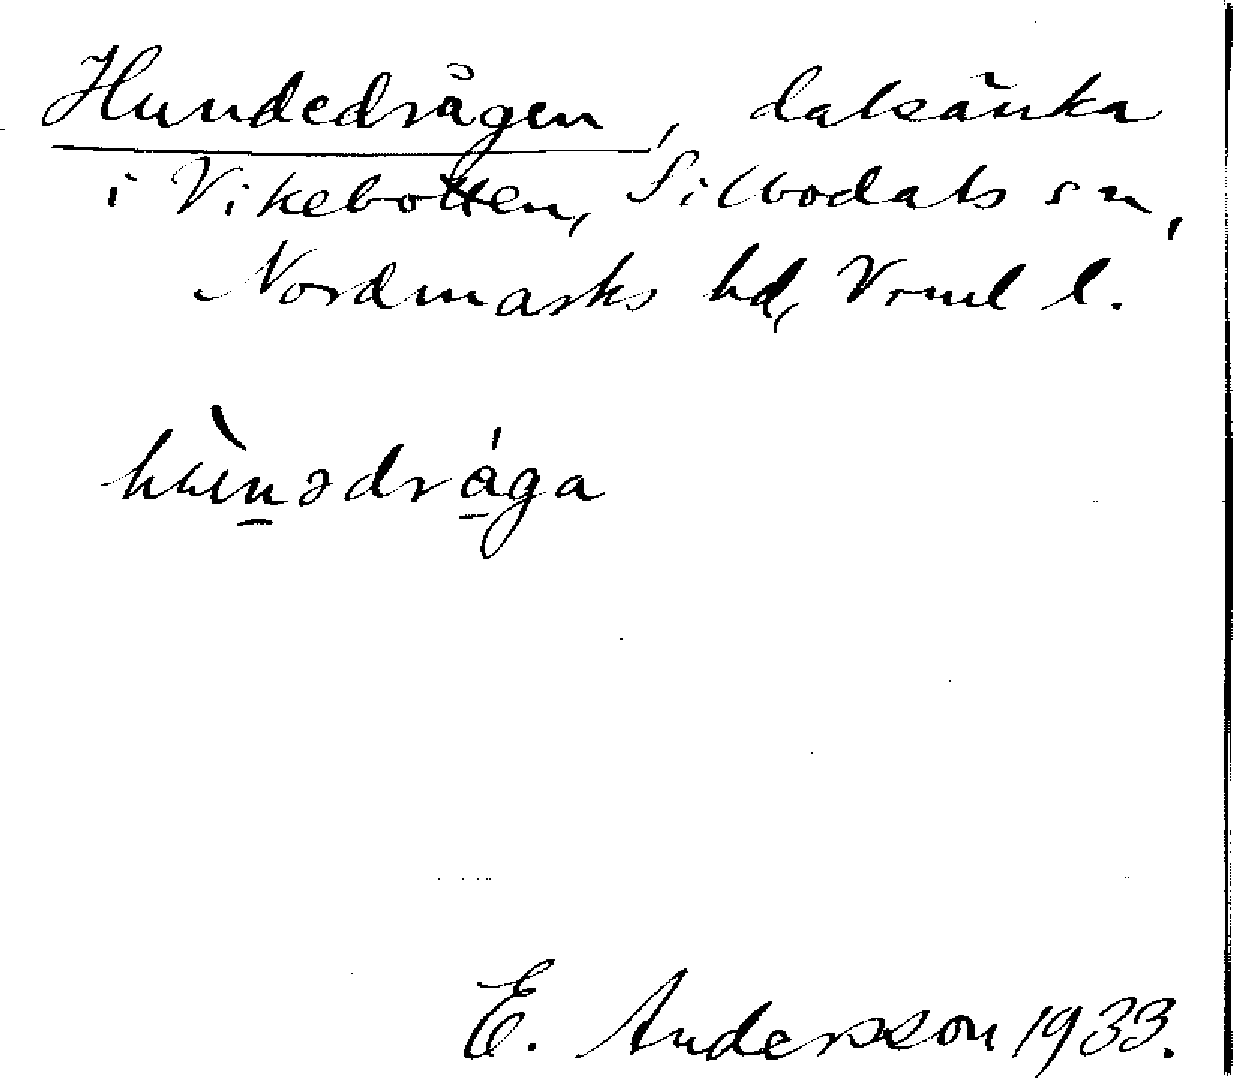 Hundedrågen, dalsänka
i Vikebotten, Silbodals sn,
Nordmarks hd, Vrml l.
hùn̲ədrǻ̲ga
E. Andersson 1933.